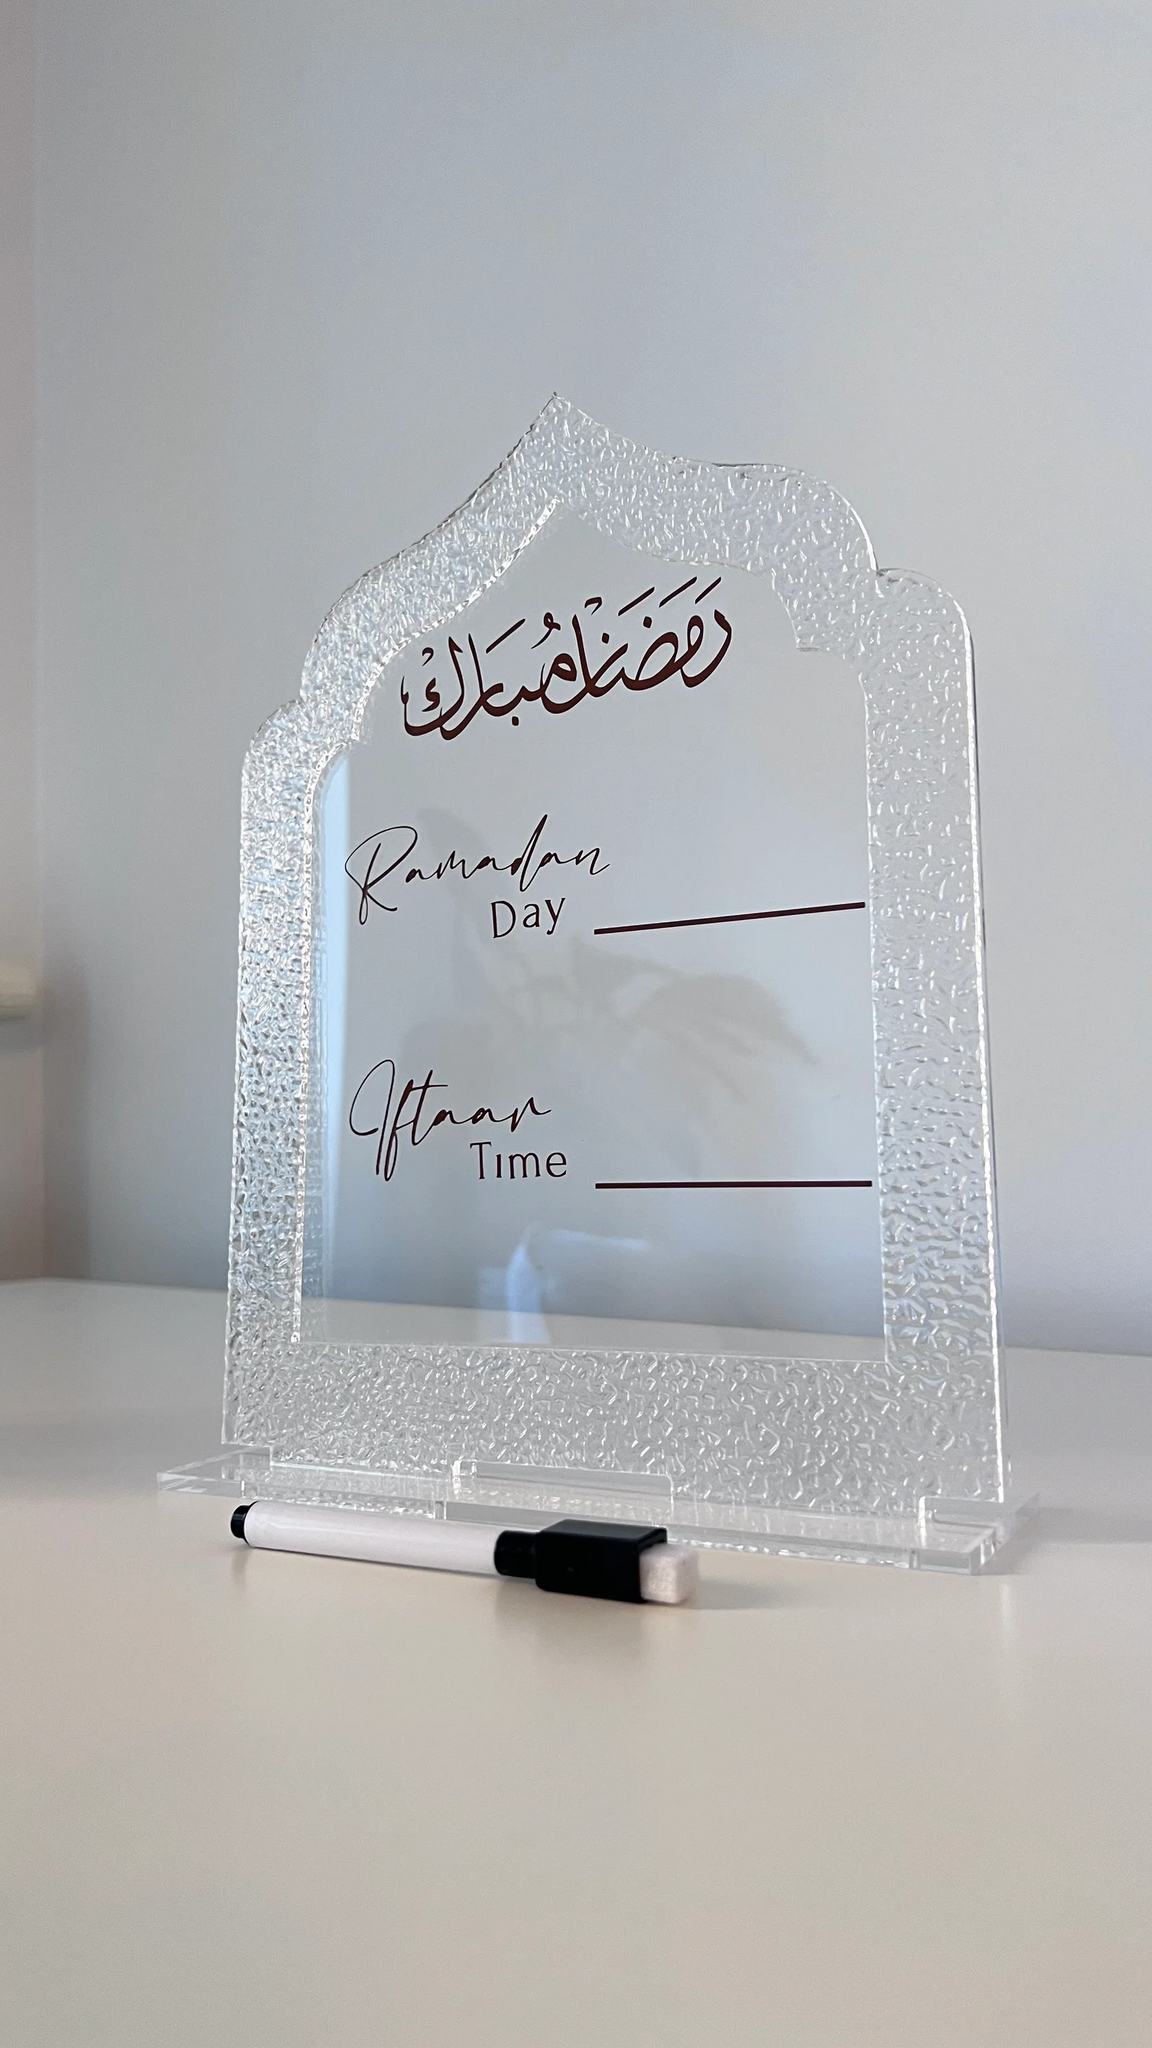 رَمَضَان مُبَارَك
Ramadan
Day
Iftaar
Time